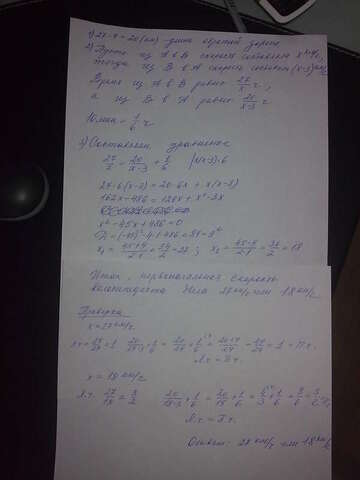 1) 27-7=20 (км) длина обратной дороги
2) Пусть из А в В скорость составляла x км/ч,
тогда из В в А скорость составила (x-3) км/ч
Время из А в В равно 27/x ч,
а из В в А равно 20/x-3 ч
10 мин = 1/6 ч
3) Составляем уравнение
27/x = 20/x-3 + 1/6 | x(x-3)·6
27·6(x-3) = 20·6x + x(x-3)
162x-486 = 120x + x²-3x
x²-45x+486=0
D = (-45)²-4·1·486=81=9²
x₁ = 45+9/2·1 = 54/2 = 27 ; x₂ = 45-9/2·1 = 36/2 = 18
Итак, первоначальная скорость
велосипедиста была 27 км/ч или 18 км/ч
Проверка
x=27 км/ч
Л.ч = П.ч.
x = 18 км/ч
Л.ч. 27/18 = 3/2 20/18-3 + 1/6 = 20/15 + 1/6 = 4/3 + 1/6
Л.ч = П.ч.
Ответ: 27 км/ч или 18 км/ч